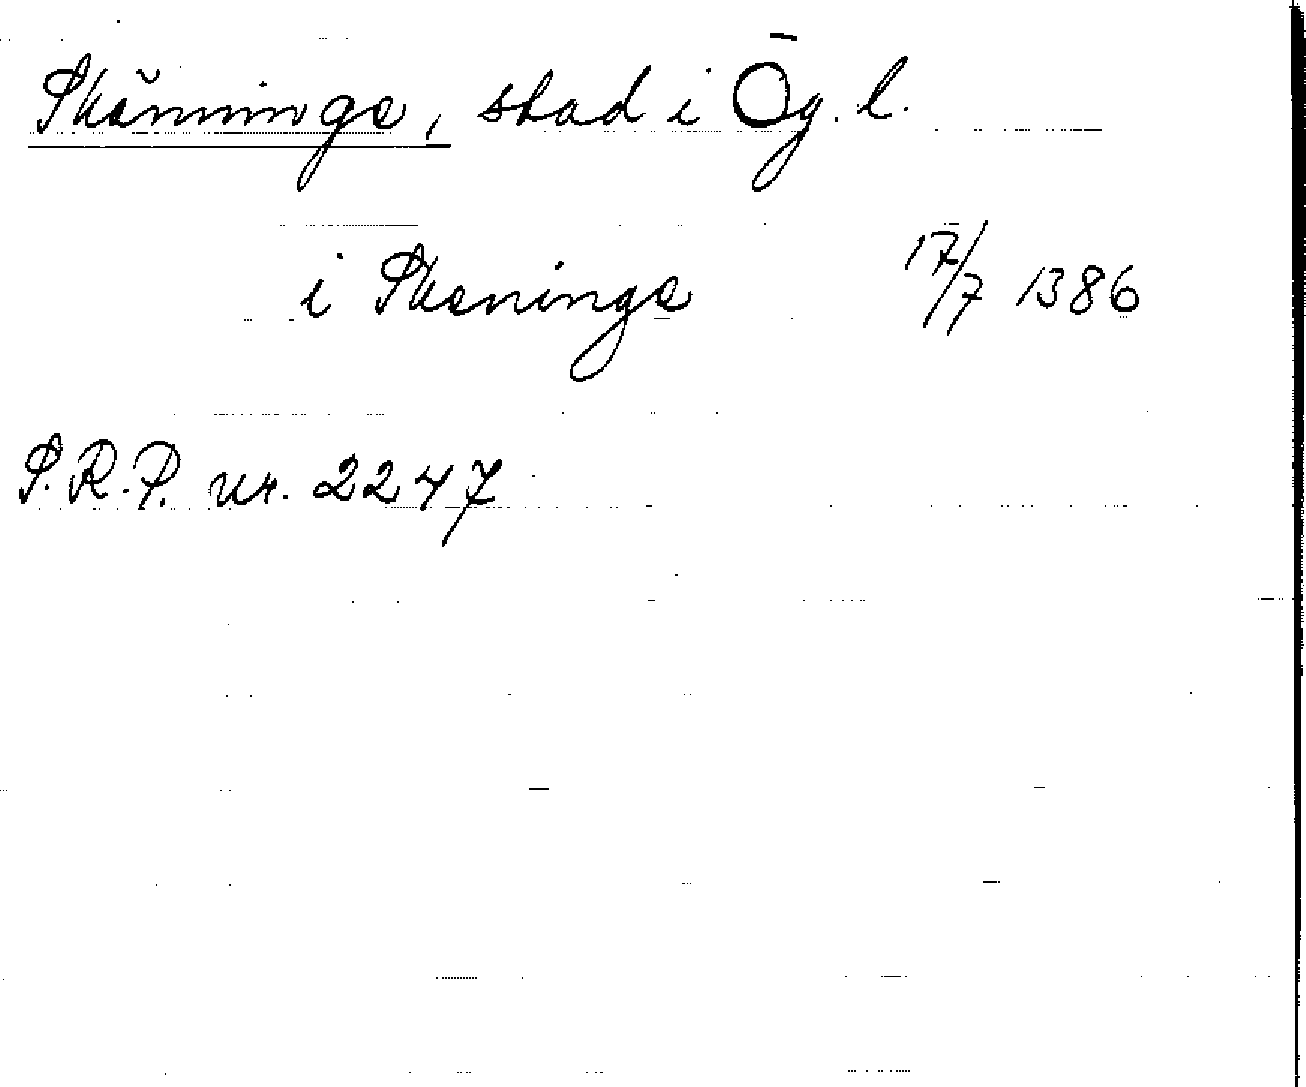 Skänninge, stad i Ög. l.
i Skeninge 17/7 1386
S.R.P. nr. 2247